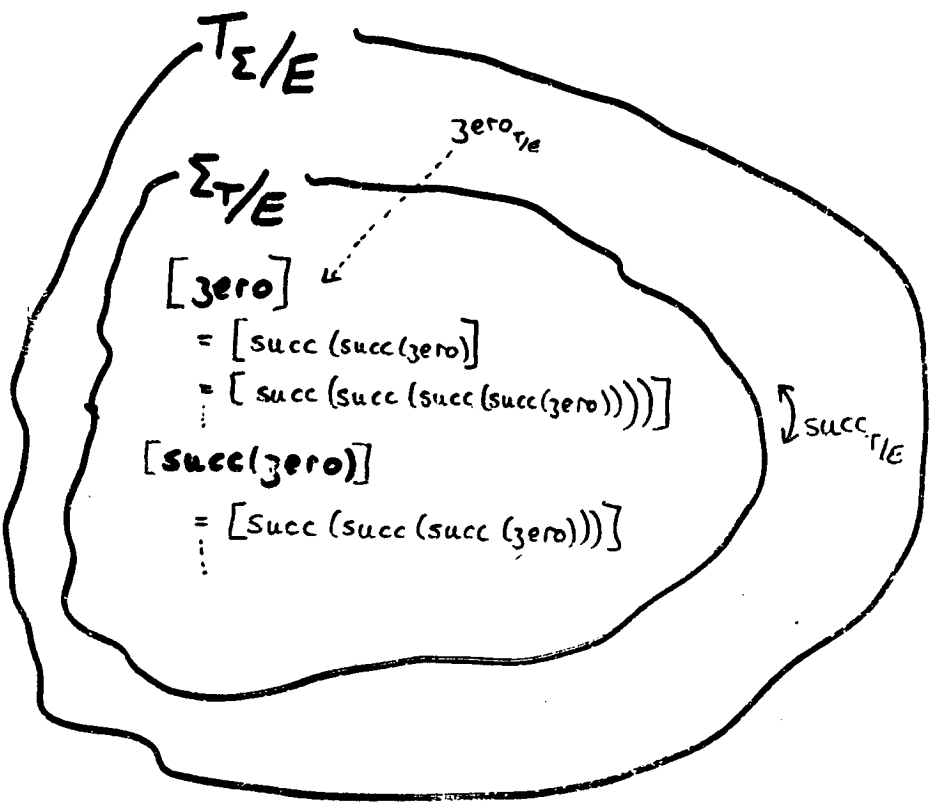 T_Σ/E
zero_T/E
Σ_T/E
[zero]
= [succ (succ(zero)]
= [succ (succ (succ (succ(zero))))]
⋮
succ_T/E
[succ(zero)]
= [succ (succ (succ (zero)))]
⋮